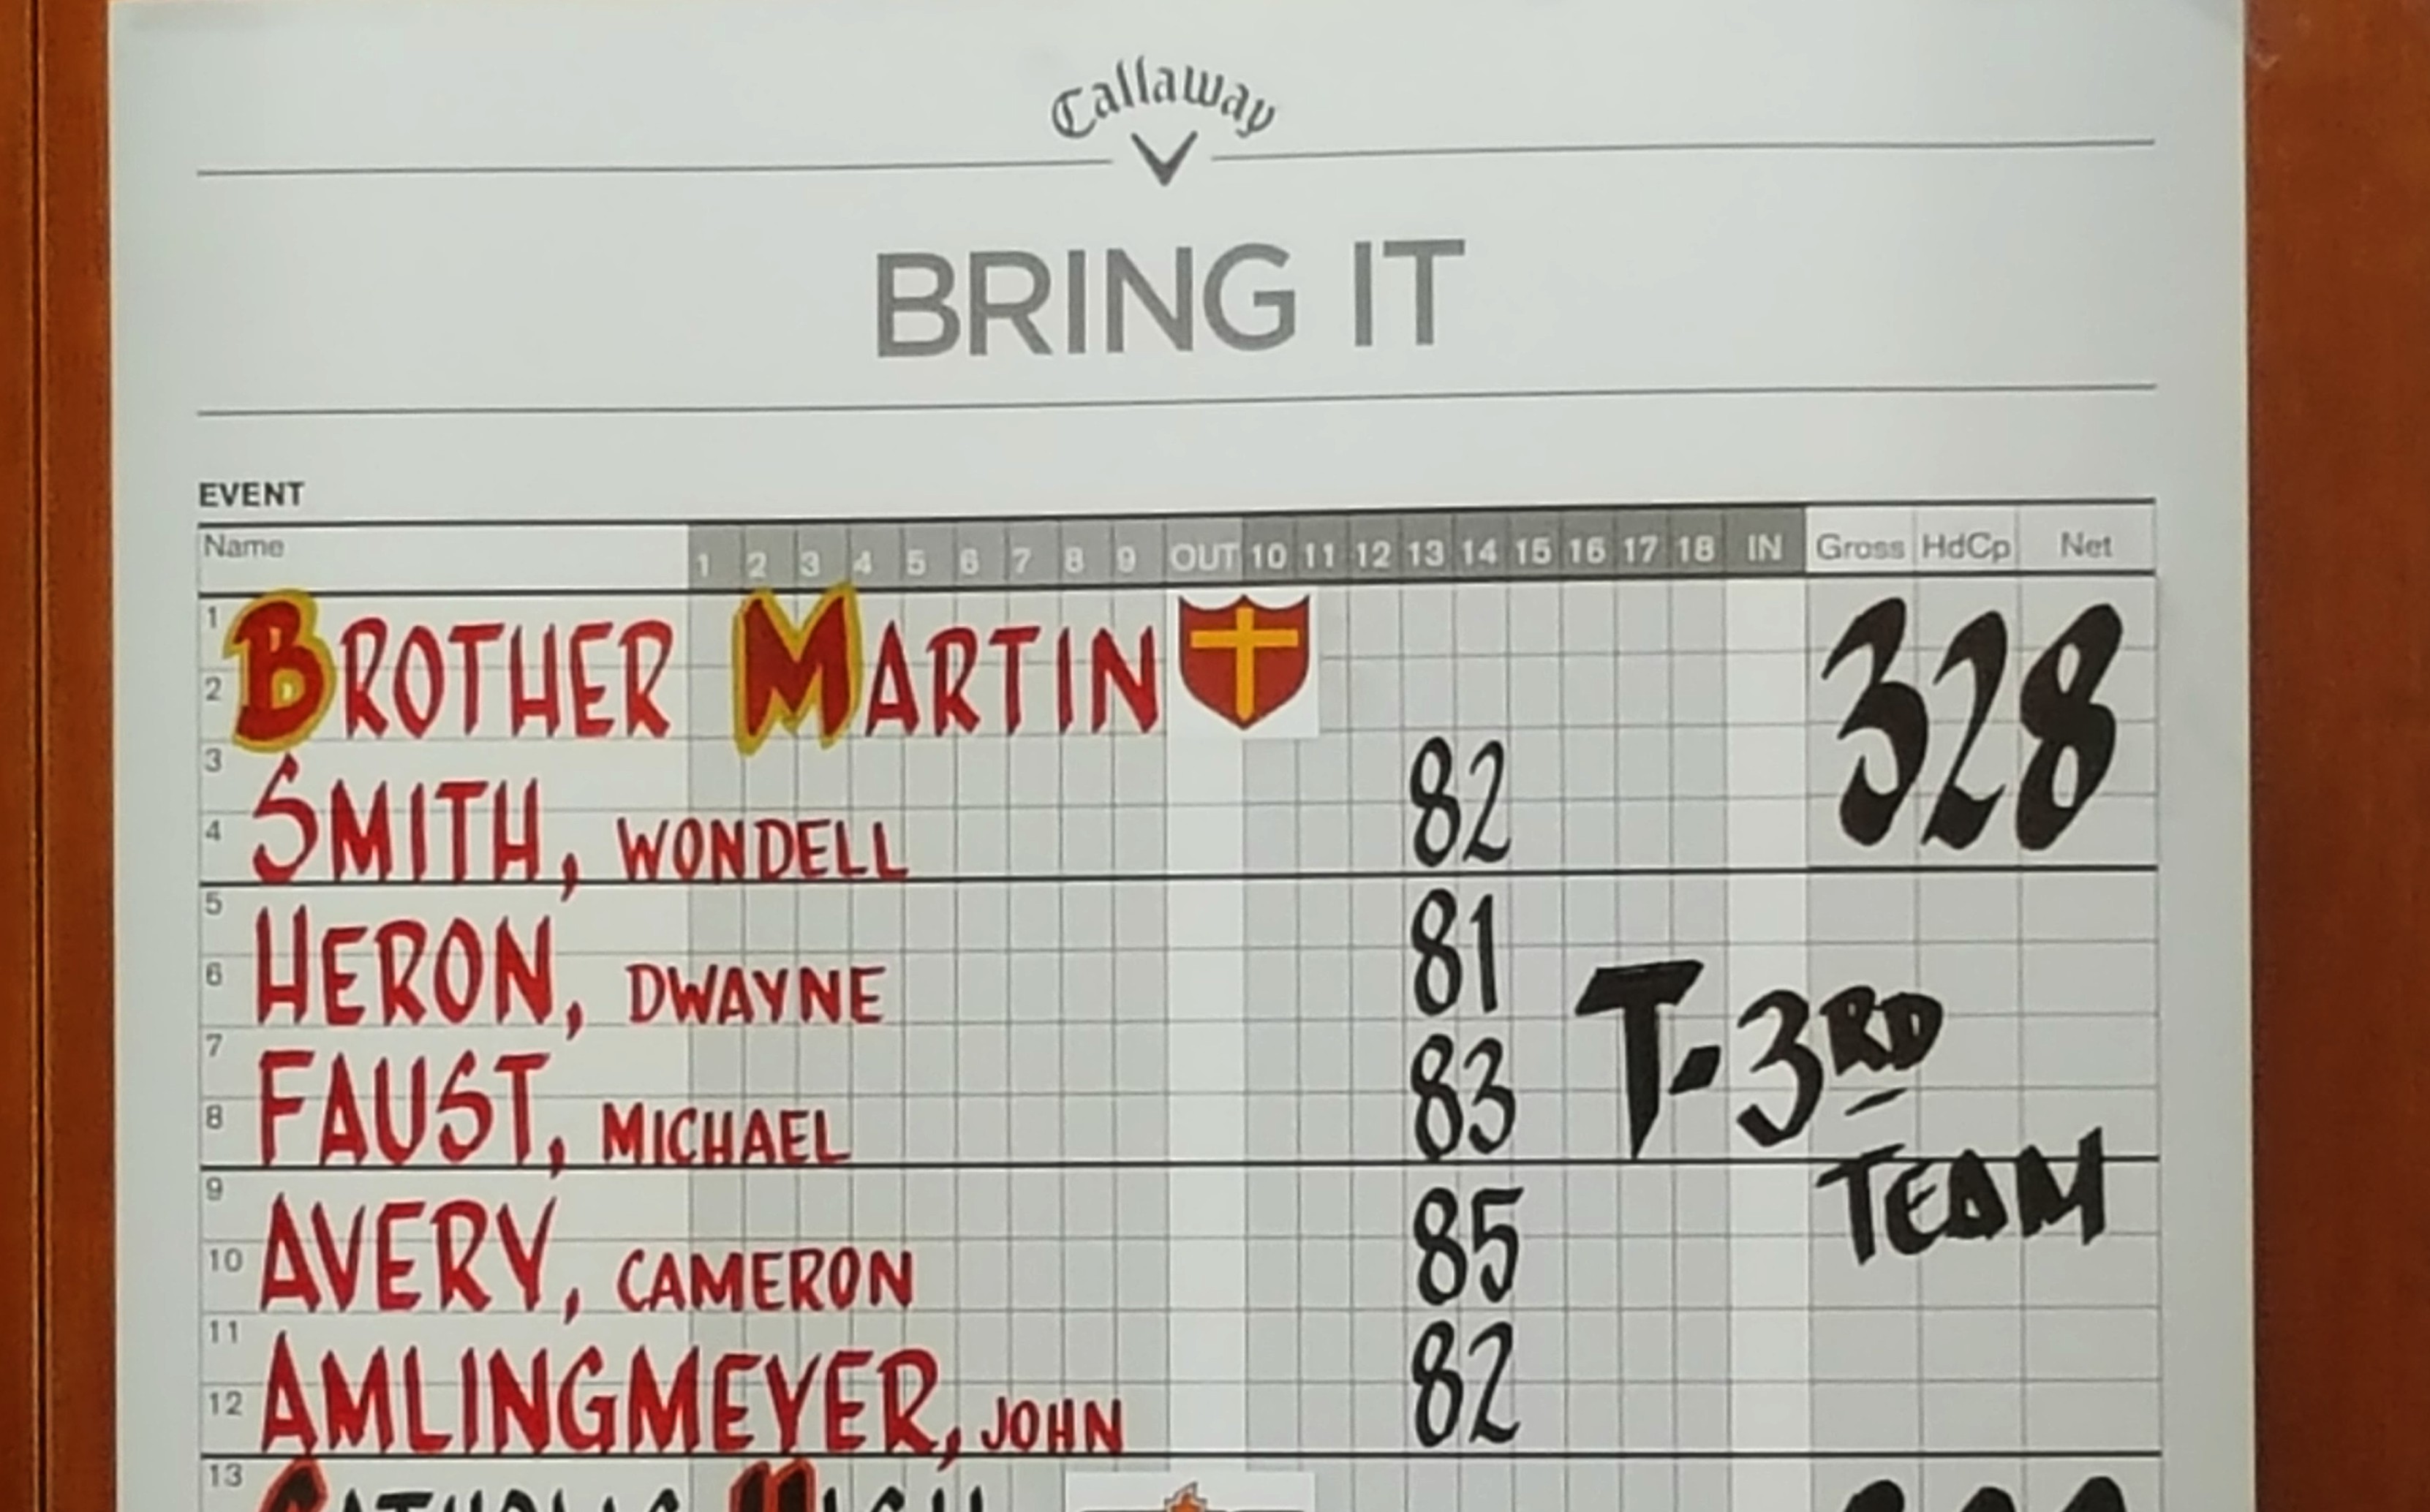 Callaway
BRING IT
EVENT
Name 1 2 3 4 5 6 7 8 9 OUT 10 11 12 13 14 15 16 17 18 IN Gross HdCp Net
1
2 BROTHER MARTIN 328
3
4 SMITH, WONDELL 82
5
6 HERON, DWAYNE 81
7
8 FAUST, MICHAEL 83 T-3RD
TEAM
9
10 AVERY, CAMERON 85
11
12 AMLINGMEYER, JOHN 82
13 CATHOLIC HIGH